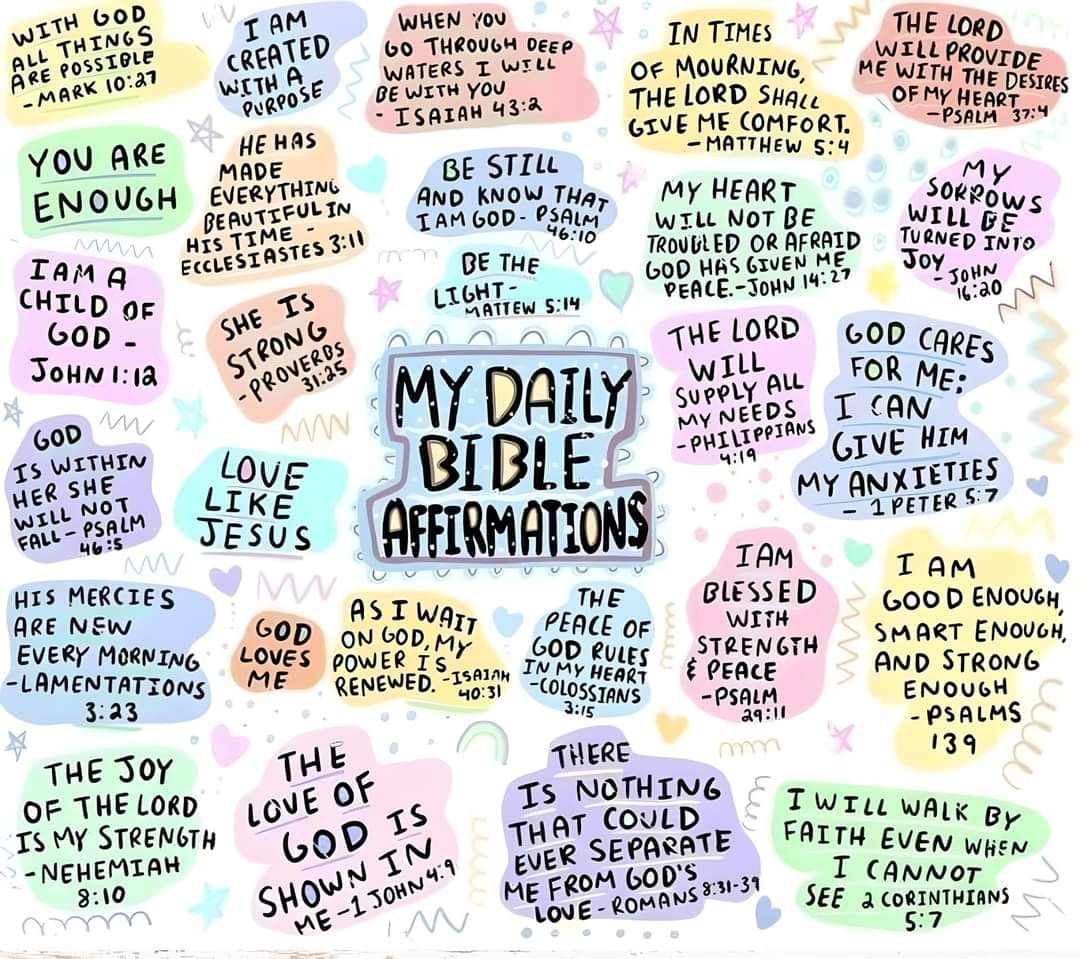 WITH GOD
ALL THINGS
ARE POSSIBLE
- MARK 10:27
I AM
CREATED
WITH A
PURPOSE
WHEN YOU
GO THROUGH DEEP
WATERS I WILL
BE WITH YOU
- ISAIAH 43:2
IN TIMES
OF MOURNING,
THE LORD SHALL
GIVE ME COMFORT.
- MATTHEW 5:4
THE LORD
WILL PROVIDE
ME WITH THE DESIRES
OF MY HEART
- PSALM 37:4
YOU ARE
ENOUGH
HE HAS
MADE
EVERYTHING
BEAUTIFUL IN
HIS TIME -
ECCLESIASTES 3:11
BE STILL
AND KNOW THAT
I AM GOD - PSALM
46:10
MY HEART
WILL NOT BE
TROUBLED OR AFRAID
GOD HAS GIVEN ME
PEACE. - JOHN 14:27
MY
SORROWS
WILL BE
TURNED INTO
JOY - JOHN
16:20
I AM A
CHILD OF
GOD -
JOHN 1:12
SHE IS
STRONG
- PROVERBS
31:25
BE THE
LIGHT -
MATTEW 5:14
MY DAILY
BIBLE
AFFIRMATIONS
THE LORD
WILL
SUPPLY ALL
MY NEEDS
- PHILIPPIANS
4:19
GOD CARES
FOR ME;
I CAN
GIVE HIM
MY ANXIETIES
- 1 PETER 5:7
GOD
IS WITHIN
HER SHE
WILL NOT
FALL - PSALM
46:5
LOVE
LIKE
JESUS
HIS MERCIES
ARE NEW
EVERY MORNING
- LAMENTATIONS
3:23
GOD
LOVES
ME
AS I WAIT
ON GOD, MY
POWER IS
RENEWED. - ISAIAH
40:31
THE
PEACE OF
GOD RULES
IN MY HEART
- COLOSSIANS
3:15
I AM
BLESSED
WITH
STRENGTH
& PEACE
- PSALM
29:11
I AM
GOOD ENOUGH,
SMART ENOUGH,
AND STRONG
ENOUGH
- PSALMS
139
THE JOY
OF THE LORD
IS MY STRENGTH
- NEHEMIAH
8:10
THE
LOVE OF
GOD IS
SHOWN IN
ME - 1 JOHN 4:9
THERE
IS NOTHING
THAT COULD
EVER SEPARATE
ME FROM GOD'S
LOVE - ROMANS 8:31-39
I WILL WALK BY
FAITH EVEN WHEN
I CANNOT
SEE 2 CORINTHIANS
5:7